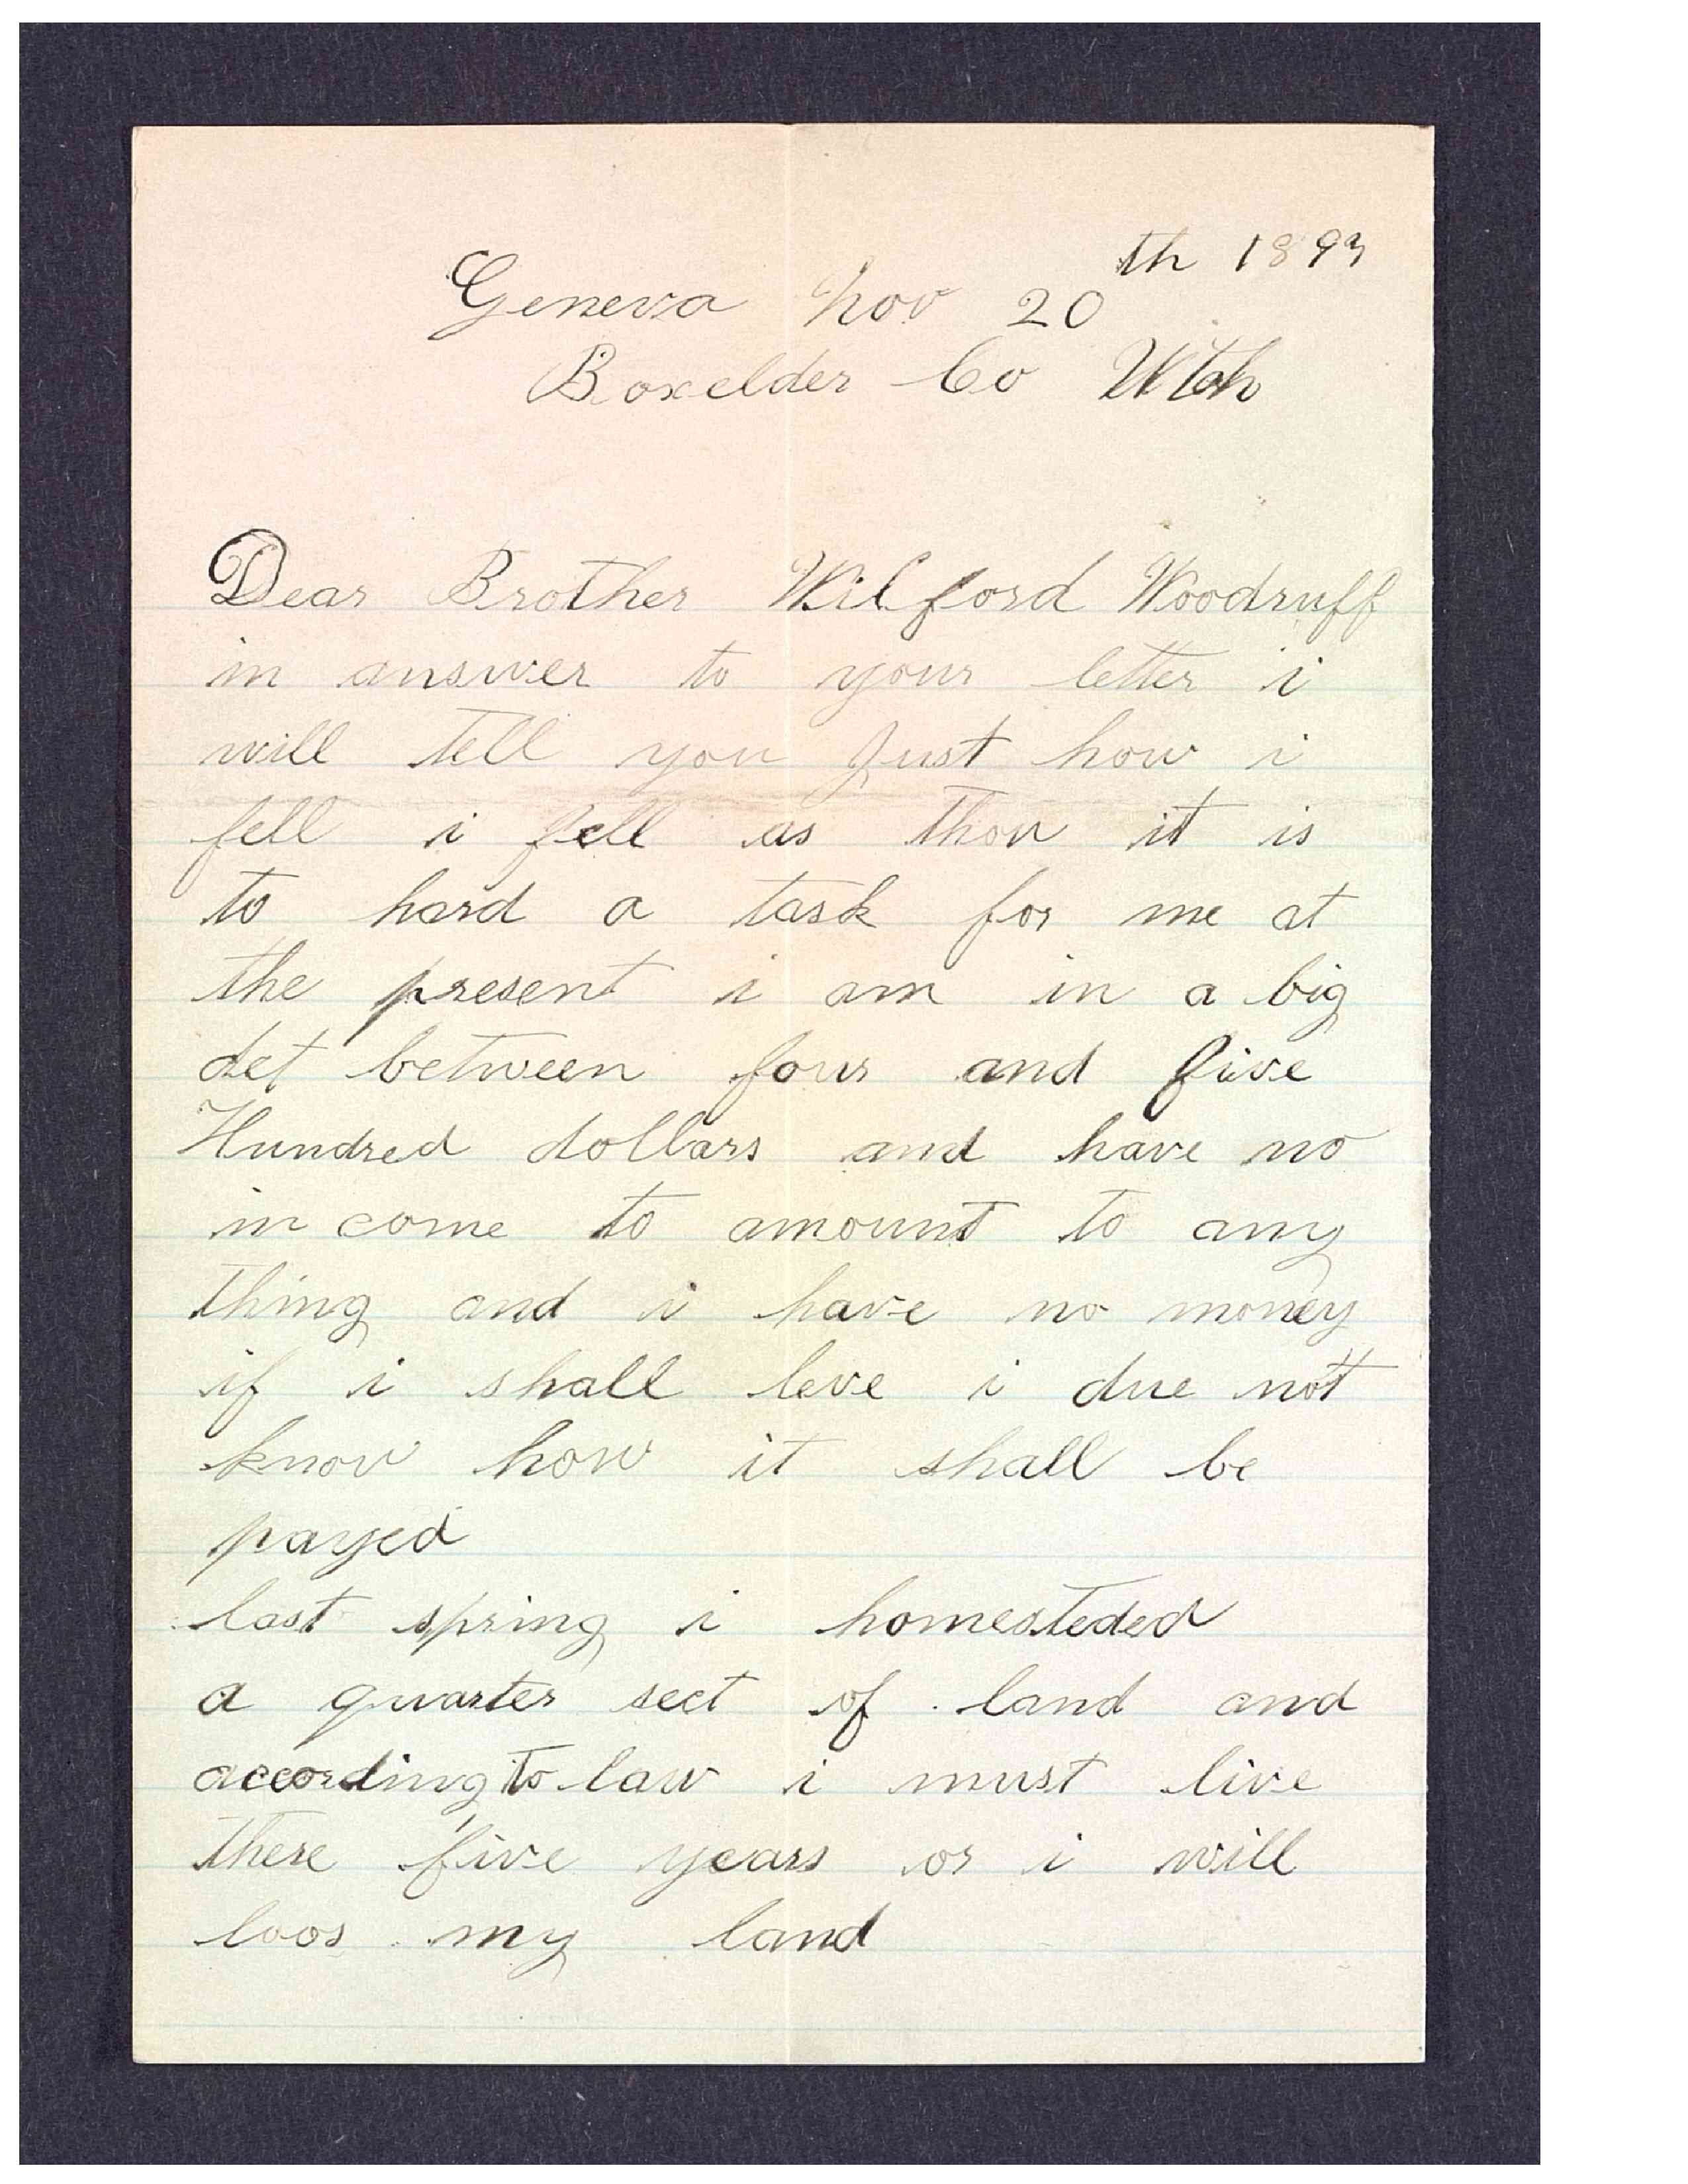 th 1893
Geneva Nov 20
Boxelder Co Utah
Dear Brother Wilford Woodruff
in answer to your letter i
will tell you Just how i
fell i fell as thou it is
to hard a task for me at
the present i am in a big
det between four and five
Hundred dollars and have no
in come to amount to any
thing and i have no money
if i shall leve i due not
know how it shall be
payed
last spring i homesteded
a quarter sect of land and
according to law i must live
there five years or i will
loos my land